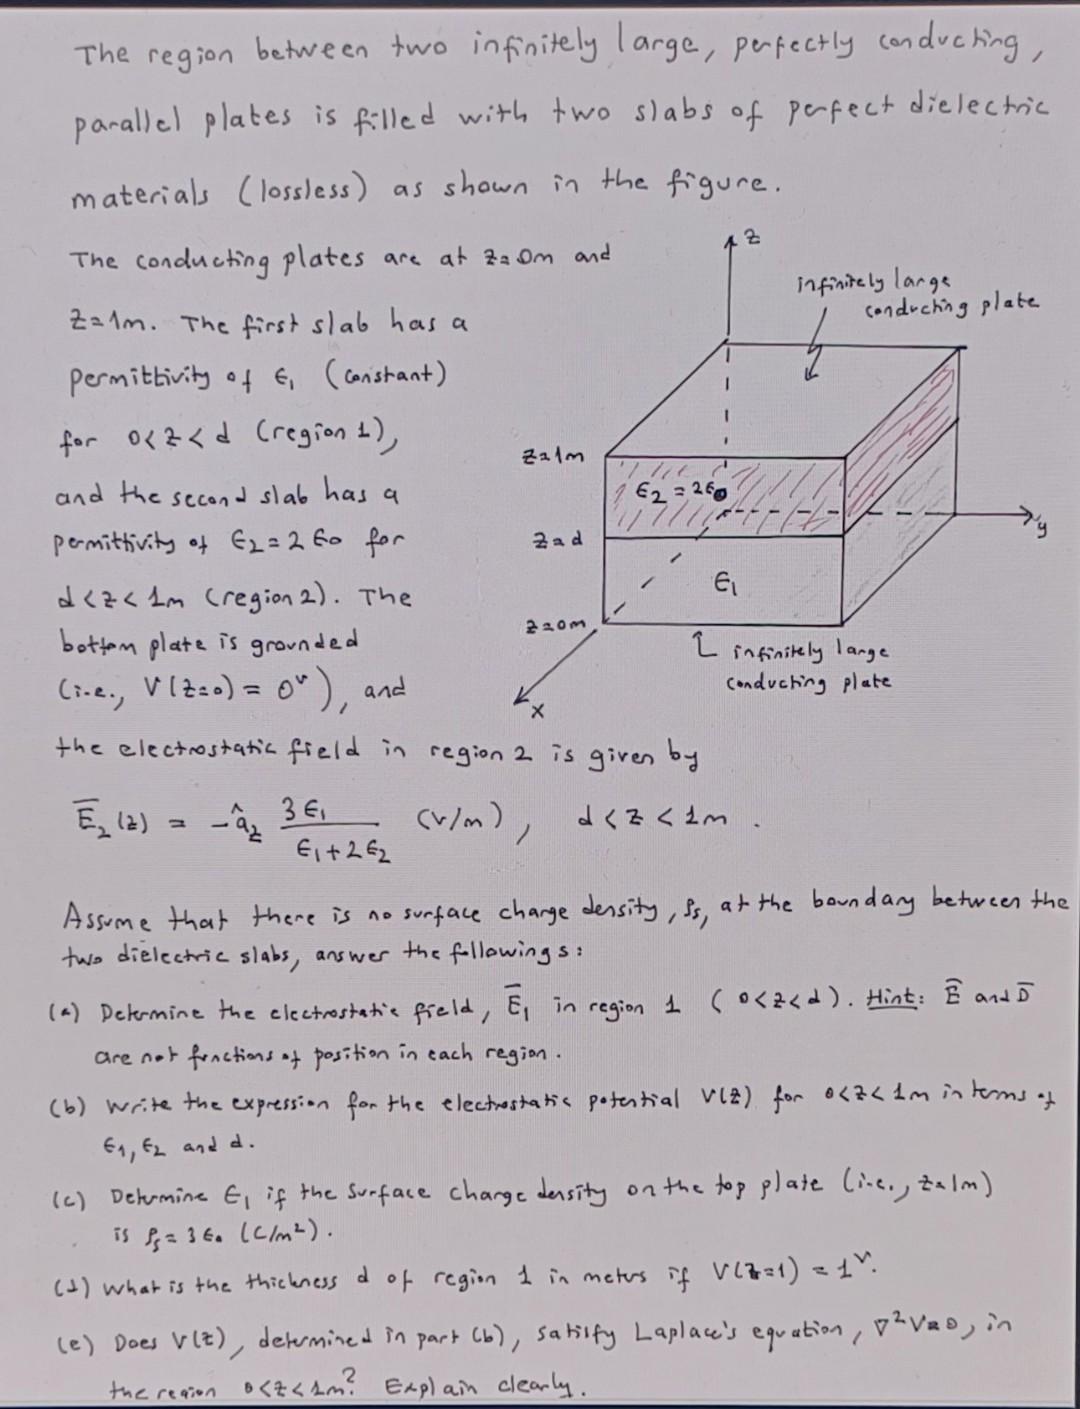 The region between two infinitely large, perfectly conducting,
parallel plates is filled with two slabs of perfect dielectric
materials (lossless) as shown in the figure.
The conducting plates are at z=0m and
z=1m. The first slab has a
permittivity of ϵ₁ (constant)
for 0<z<d (region 1),
and the second slab has a
permittivity of ϵ₂=2ϵ₀ for
d<z<1m (region 2). The
bottom plate is grounded
(i.e., V(z=0) = 0ᵛ), and
z
infinitely large
conducting plate
z=1m
ϵ₂ = 2ϵ₀
z=d
y
ϵ₁
z=0m
infinitely large
conducting plate
x
the electrostatic field in region 2 is given by
E̅₂(z) = -â_z 3ϵ₁ / (ϵ₁+2ϵ₂) (V/m), d<z<1m.
Assume that there is no surface charge density, ρₛ, at the boundary between the
two dielectric slabs, answer the followings:
(a) Determine the electrostatic field, E̅₁ in region 1 (0<z<d). Hint: E̅ and D̅
are not functions of position in each region.
(b) Write the expression for the electrostatic potential V(z) for 0<z<1m in terms of
ϵ₁, ϵ₂ and d.
(c) Determine ϵ₁ if the surface charge density on the top plate (i.e., z=1m)
is ρₛ=3ϵ₀ (C/m²).
(d) What is the thickness d of region 1 in meters if V(z=1) = 1ᵛ.
(e) Does V(z), determined in part (b), satisfy Laplace's equation, ∇²V=0, in
the region 0<z<1m? Explain clearly.